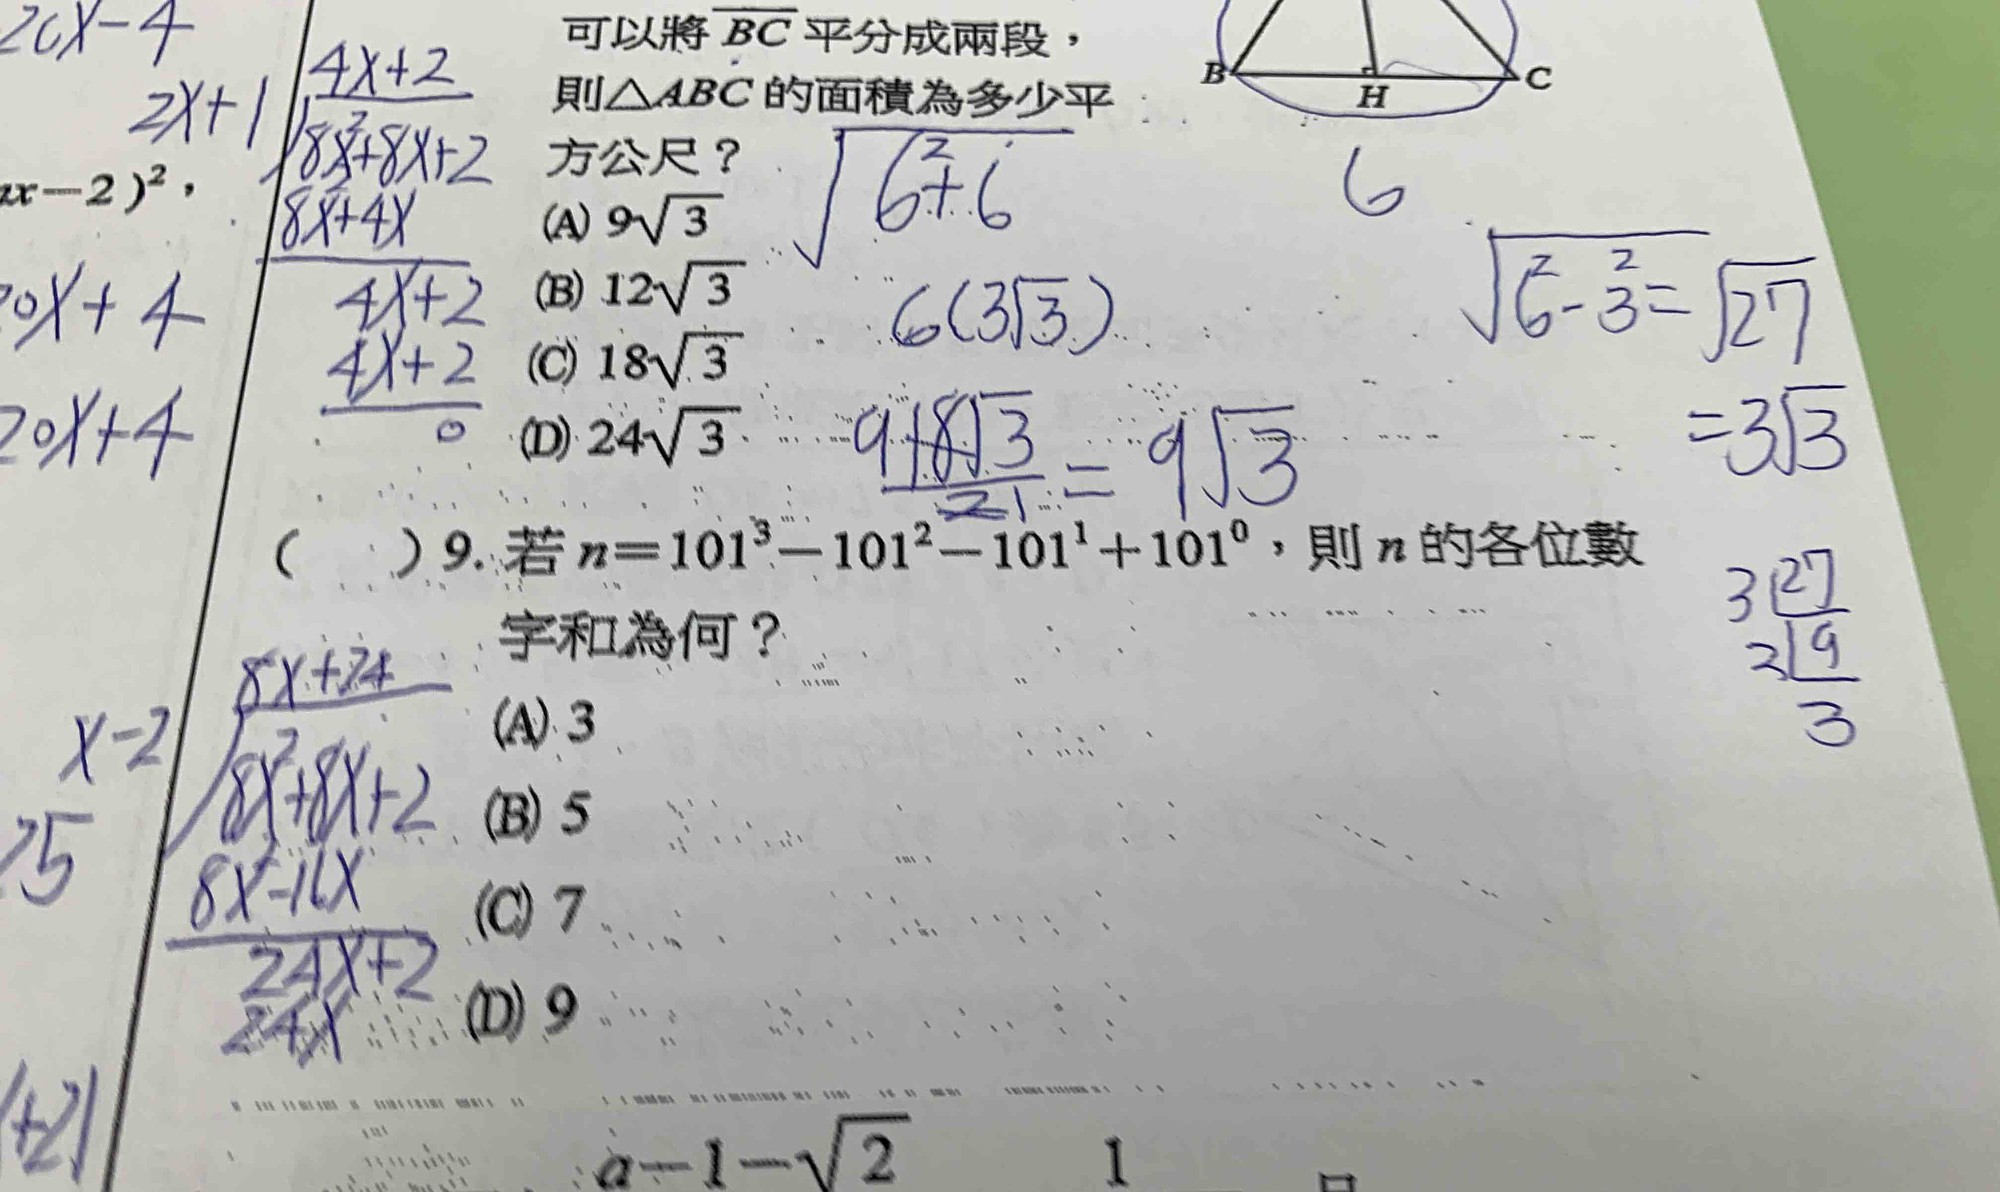 20x-4
4x+2
2x+1
8x²+8x+2
8x²+4x
4x+2
4x+2
0
x-2)²，
20x+4
20x+4
可以將BC平分成兩段，
則△ABC的面積為多少平
方公尺？
(A) 9√3
(B) 12√3
(C) 18√3
(D) 24√3
B H C
√6²+6
6
6(3√3)
√6²-3²=√27
=3√3
9 18√3
2 1
= 9√3
( ) 9. 若n=101³-101²-101¹+101⁰，則n的各位數
字和為何？
(A) 3
(B) 5
(C) 7
(D) 9
3 27
3 9
3
8x+24
x-2
8x²+8x+2
8x²-16x
24x+2
24x
25
+2)
a-1-√2 1